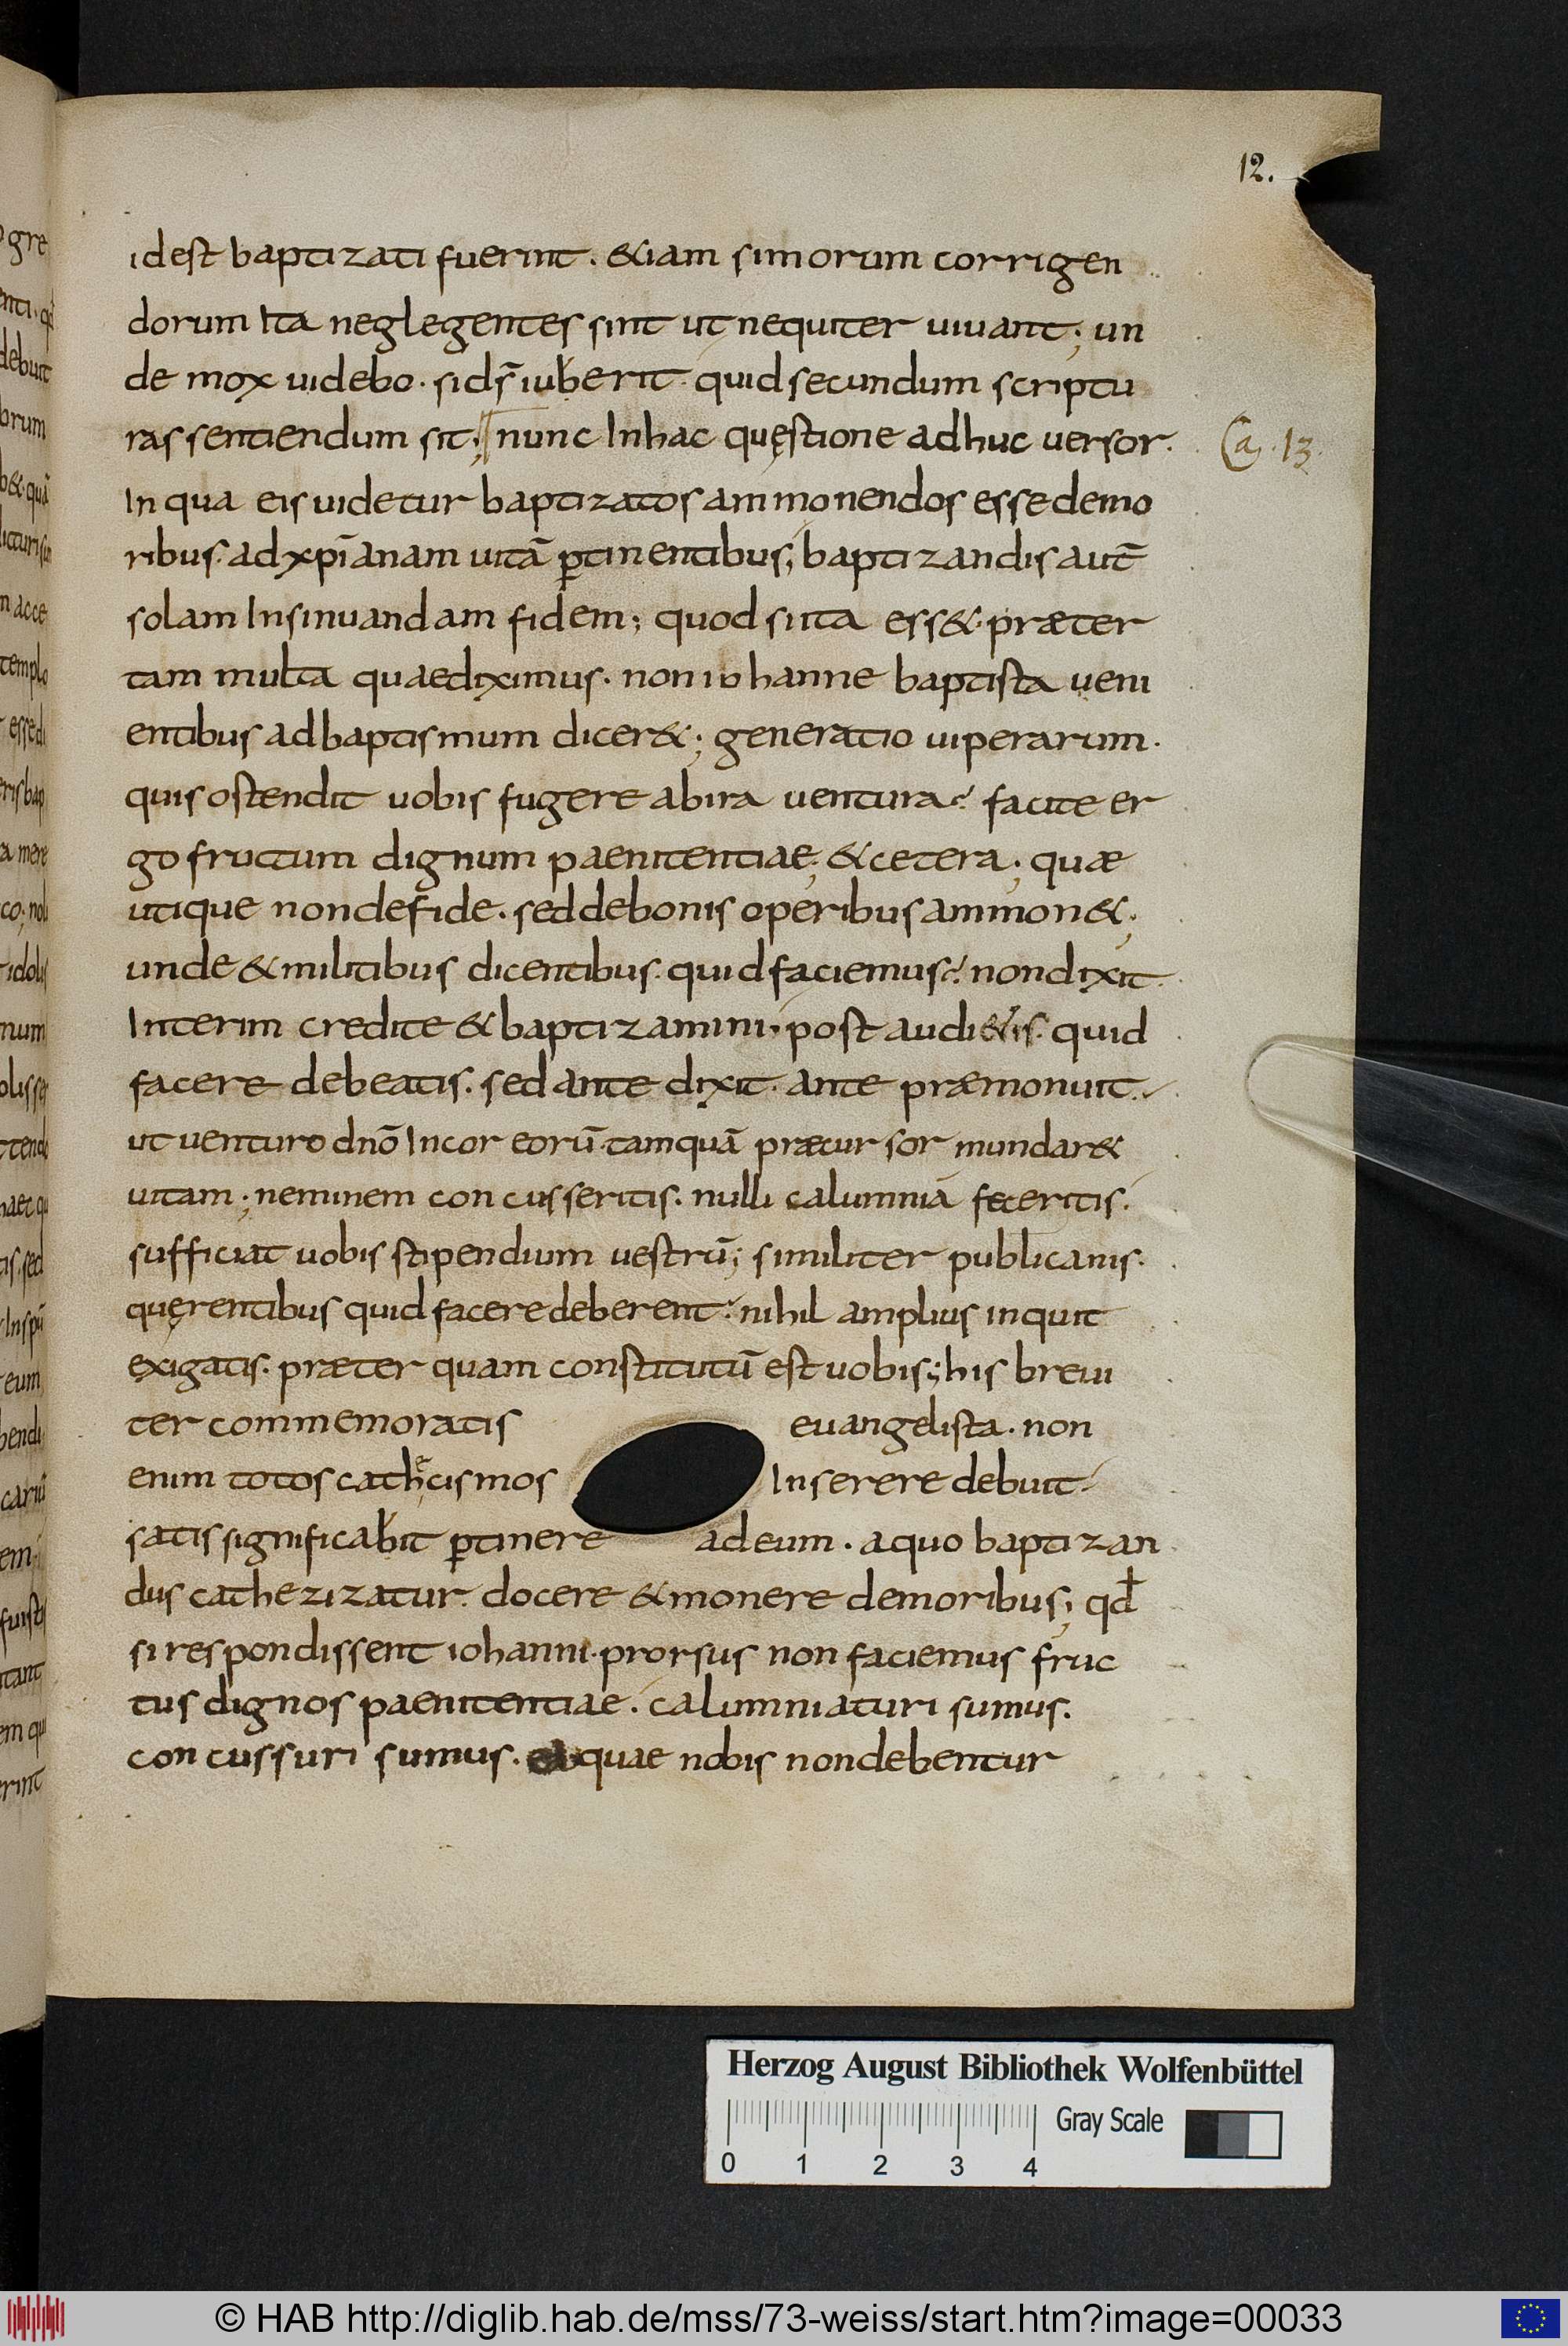 12.
idest baptizati fuerint . &iam simorum corrigen
dorum Ita neglegentes sint ut nequiter uiuant ; un
de mox uidebo . si ds̄ iuberit . quid secundum scriptu
ras sentiendum sit ; nunc In hac quęstione adhuc uersor .
Ca. 13.
In qua eis uidetur baptizatos ammonendos esse demo
ribus . ad xp̄ianam uitā ꝑtinentibus ; baptizandis aut̄
solam Insinuandam fidem ; quod si ita ess& . præter
tam multa quae diximus . non iohanne baptista ueni
entibus ad baptismum dicer& ; generatio uiperarum .
quis ostendit uobis fugere ab ira uentura ? facite er
go fructum dignum paenitentiae ; & cetera ; quæ
utique non de fide . sed de bonis operibus ammon& ;
unde & militibus dicentibus . quid faciemus ? non dixit .
Interim credite & baptizamini . post audi&is . quid
facere debeatis . sed ante dixit . ante præmonuit .
ut uenturo dnō In cor eorū . tamquā præcursor mundar&
uitam ; neminem concusseritis . nulli calumniā feceritis .
sufficiat uobis stipendium uestrū ; similiter publicanis .
quęrentibus quid facere deberent . nihil amplius inquit
exigatis . præter quam constitutū est uobis ; his breui
ter commemoratis euangelista . non
enim totos cathęcismos Inserere debuit
satis significabit ꝑtinere ad eum . a quo baptizan
dus cathezizatur . docere & monere de moribus ; qđ
si respondissent iohanni . prorsus non faciemus fruc
tus dignos paenitentiae . calumniaturi sumus .
concussuri sumus . quae nobis non debentur
o gre
debuit
brum
b& quā
n acce
templo
esse di
ris bap
a mere
co ; noli
idolis
num
olisse
tende
haec qu
is . sed
In spū
eum
bendi
cariū
em
fuisti
tant
em qui
erint
Herzog August Bibliothek Wolfenbüttel
Gray Scale
0 1 2 3 4
© HAB http://diglib.hab.de/mss/73-weiss/start.htm?image=00033